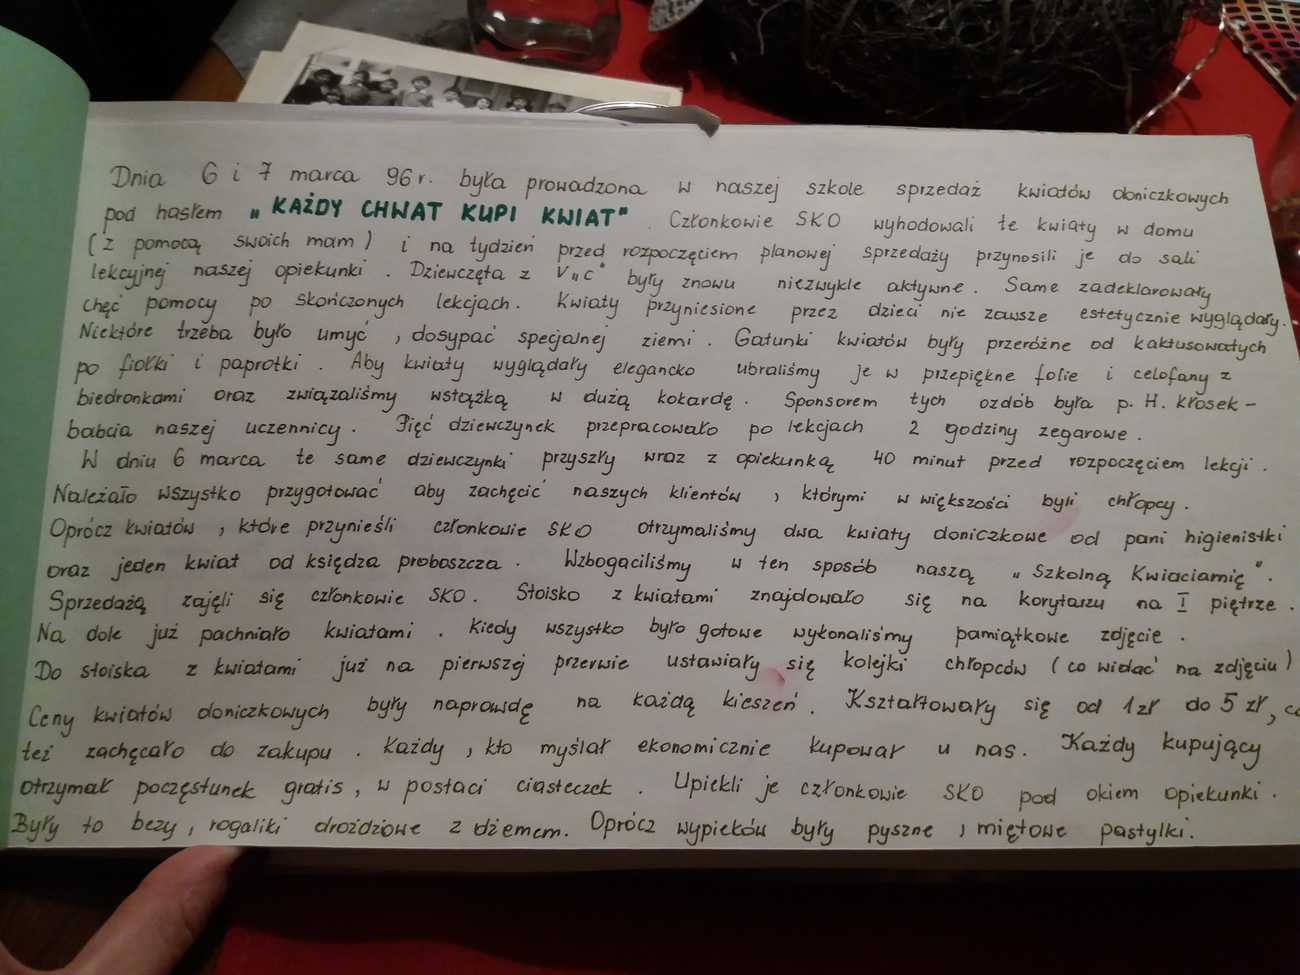 Dnia 6 i 7 marca 96r. była prowadzona w naszej szkole sprzedaż kwiatów doniczkowych
pod hasłem „KAŻDY CHWAT KUPI KWIAT". Członkowie SKO wyhodowali te kwiaty w domu
(z pomocą swoich mam) i na tydzień przed rozpoczęciem planowej sprzedaży przynosili je do sali
lekcyjnej naszej opiekunki. Dziewczęta z V „c" były znowu niezwykle aktywne. Same zadeklarowały
chęć pomocy po skończonych lekcjach. Kwiaty przyniesione przez dzieci nie zawsze estetycznie wyglądały.
Niektóre trzeba było umyć, dosypać specjalnej ziemi. Gatunki kwiatów były przeróżne od kaktusowatych
po fiołki i paprotki. Aby kwiaty wyglądały elegancko ubraliśmy je w przepiękne folie i celofany z
biedronkami oraz związaliśmy wstążką w dużą kokardę. Sponsorem tych ozdób była p. H. Kłosek -
babcia naszej uczennicy. Pięć dziewczynek przepracowało po lekcjach 2 godziny zegarowe.
W dniu 6 marca te same dziewczynki przyszły wraz z opiekunką 40 minut przed rozpoczęciem lekcji.
Należało wszystko przygotować aby zachęcić naszych klientów, którymi w większości byli chłopcy.
Oprócz kwiatów, które przynieśli członkowie SKO otrzymaliśmy dwa kwiaty doniczkowe od pani higienistki
oraz jeden kwiat od księdza proboszcza. Wzbogaciliśmy w ten sposób naszą „Szkolną Kwiaciarnię".
Sprzedażą zajęli się członkowie SKO. Stoisko z kwiatami znajdowało się na korytarzu na I piętrze.
Na dole już pachniało kwiatami. Kiedy wszystko było gotowe wykonaliśmy pamiątkowe zdjęcie.
Do stoiska z kwiatami już na pierwszej przerwie ustawiały się kolejki chłopców (co widać na zdjęciu)
Ceny kwiatów doniczkowych były naprawdę na każdą kieszeń. Kształtowały się od 1zł do 5 zł, co
też zachęcało do zakupu. Każdy, kto myślał ekonomicznie kupował u nas. Każdy kupujący
otrzymał poczęstunek gratis, w postaci ciasteczek. Upiekli je członkowie SKO pod okiem opiekunki.
Były to bezy, rogaliki drożdżowe z dżemem. Oprócz wypieków były pyszne, miętowe pastylki.